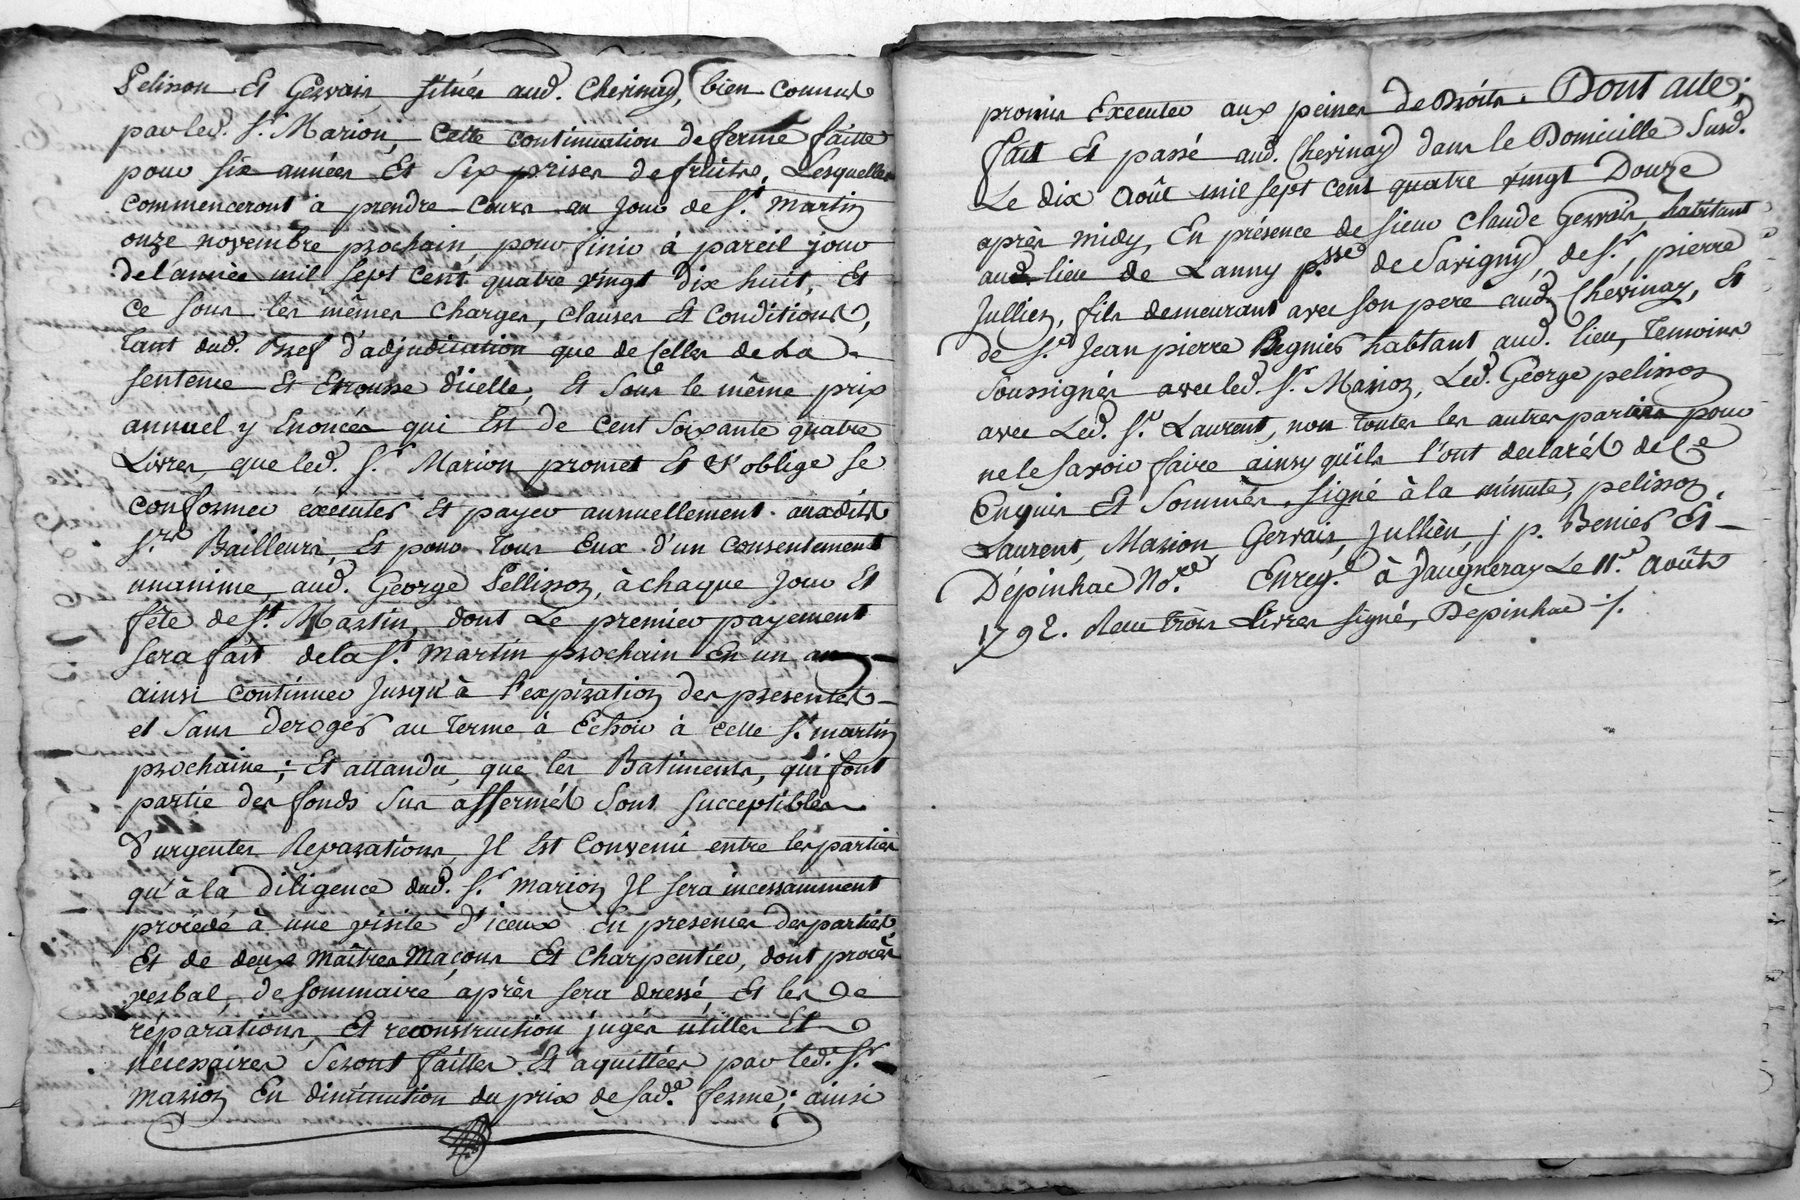 Pelisson Et Gervais, situés aud. Chevinay, bien connus
par led. Sr. Marion, cette continuation de ferme faitte
pour six années Et Six prises de fruits, Lesquelles
commenceront à prendre cours au jour de St. Martin
onze novembre prochain, pour finir à pareil jour
de l'année mil sept cent quatre vingt dix huit, Et
ce sous les mêmes charges, clauses Et Conditions,
tant dud. Bref d'adjudication que de Celles de La
sentence Et d'icelle, Et Sous le même prix
annuel y Enoncés qui Est de Cent Soixante quatre
Livres, que led. Sr. Marion promet Et s'oblige se
conformer éxécuter Et payer annuellement auxdits
Srs. Bailleurs, Et pour Tous Eux d'un Consentement
unanime, aud. George Pellisson, à chaque Jour Et
fête de St. Martin, dont Le premier payement
sera fait de la St. Martin prochain En un an
ainsi Continuer Jusqu'à l'expiration des presentes
et Sans deroger au Terme à Echoir à celle St. martin
prochaine; Et attandu, que les Batiments, qui font
partie des fonds Sus affermés Sont Succeptibles
d'urgentes Reparations, Il Est Convenu entre les parties
qu'à la diligence dud. Sr. Marion Il sera incessamment
procédé à une visite d'iceux En presences des parties
Et de deux Maîtres Maçons Et Charpentier, dont procès
verbal, de sommaire après sera dressé, Et les de
réparations, Et reconstruction jugés utilles Et
nécessaires Seront faittes Et aquittées par led. Sr.
Marion En diminution du prix de Sade. ferme; ainsi
promis Executer aux peines de Droits. Dont acte;
fait Et passé aud. Chevinay dans le Domicille Susd.
Le dix Août mil sept cent quatre vingt Douze
après midy, En présence de sieur Claude Gervais, habitant
aud. lieu de Lanny psse. de Savigny, de Sr. pierre
Jullien, fils demeurant avec son pere aud. Chevinay, Et
de Sr. Jean pierre Regnier habtant aud. lieu, Temoins
Soussignés avec led. Sr. Marion, Led. George pelisson
avec Led. Sr. Laurent, non toutes les autres parties pour
ne le savoir faire ainsy qu'ils l'ont declarés de Ce
Enquis Et Sommés. Signé à la minute, pelisson,
Laurent, Marion, Gervais, Jullien, j p. Benier Et
Dépinhac Nore. Enregé. à Vaugneray Le 11e. Août
1792. Reçu trois Livres signé, Depinhac ./.